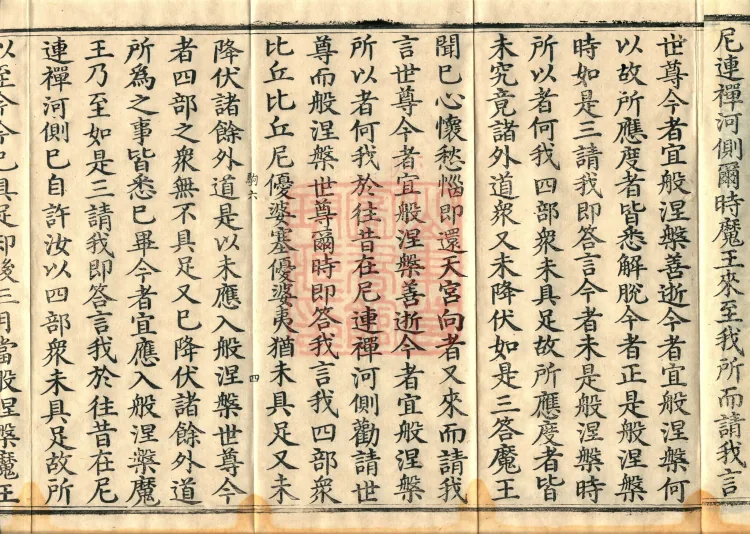 尼連禪河側爾時魔王來至我所而請我言
世尊今者宜般涅槃善逝今者宜般涅槃何
以故所應度者皆悉解脫今者正是般涅槃
時如是三請我即答言今者未是般涅槃時
所以者何我四部衆未具足故所應度者皆
未究竟諸外道衆又未降伏如是三答魔王
聞已心懷愁惱即還天宮向者又來而請我
言世尊今者宜般涅槃善逝今者宜般涅槃
所以者何我於往昔在尼連禪河側勸請世
尊而般涅槃世尊爾時即答我言我四部衆
比丘比丘尼優婆塞優婆夷猶未具足又未
駒六
四
降伏諸餘外道是以未應入般涅槃世尊今
者四部之衆無不具足又已降伏諸餘外道
所為之事皆悉已畢今者宜應入般涅槃魔
王乃至如是三請我即答言我於往昔在尼
連禪河側已自許汝以四部衆未具足故所
以至今今已具足却後三月當般涅槃魔王